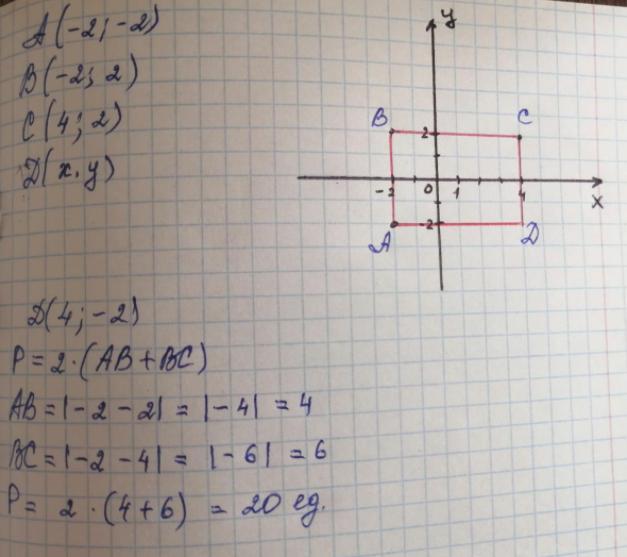 A(-2; -2)
B(-2; 2)
C(4; 2)
D(x. y)
y
B
C
2
-2
0
1
4
x
-2
A
D
D(4; -2)
P = 2·(AB+BC)
AB = |-2 - 2| = |-4| = 4
BC = |-2 - 4| = |-6| = 6
P = 2 · (4+6) = 20 ед.